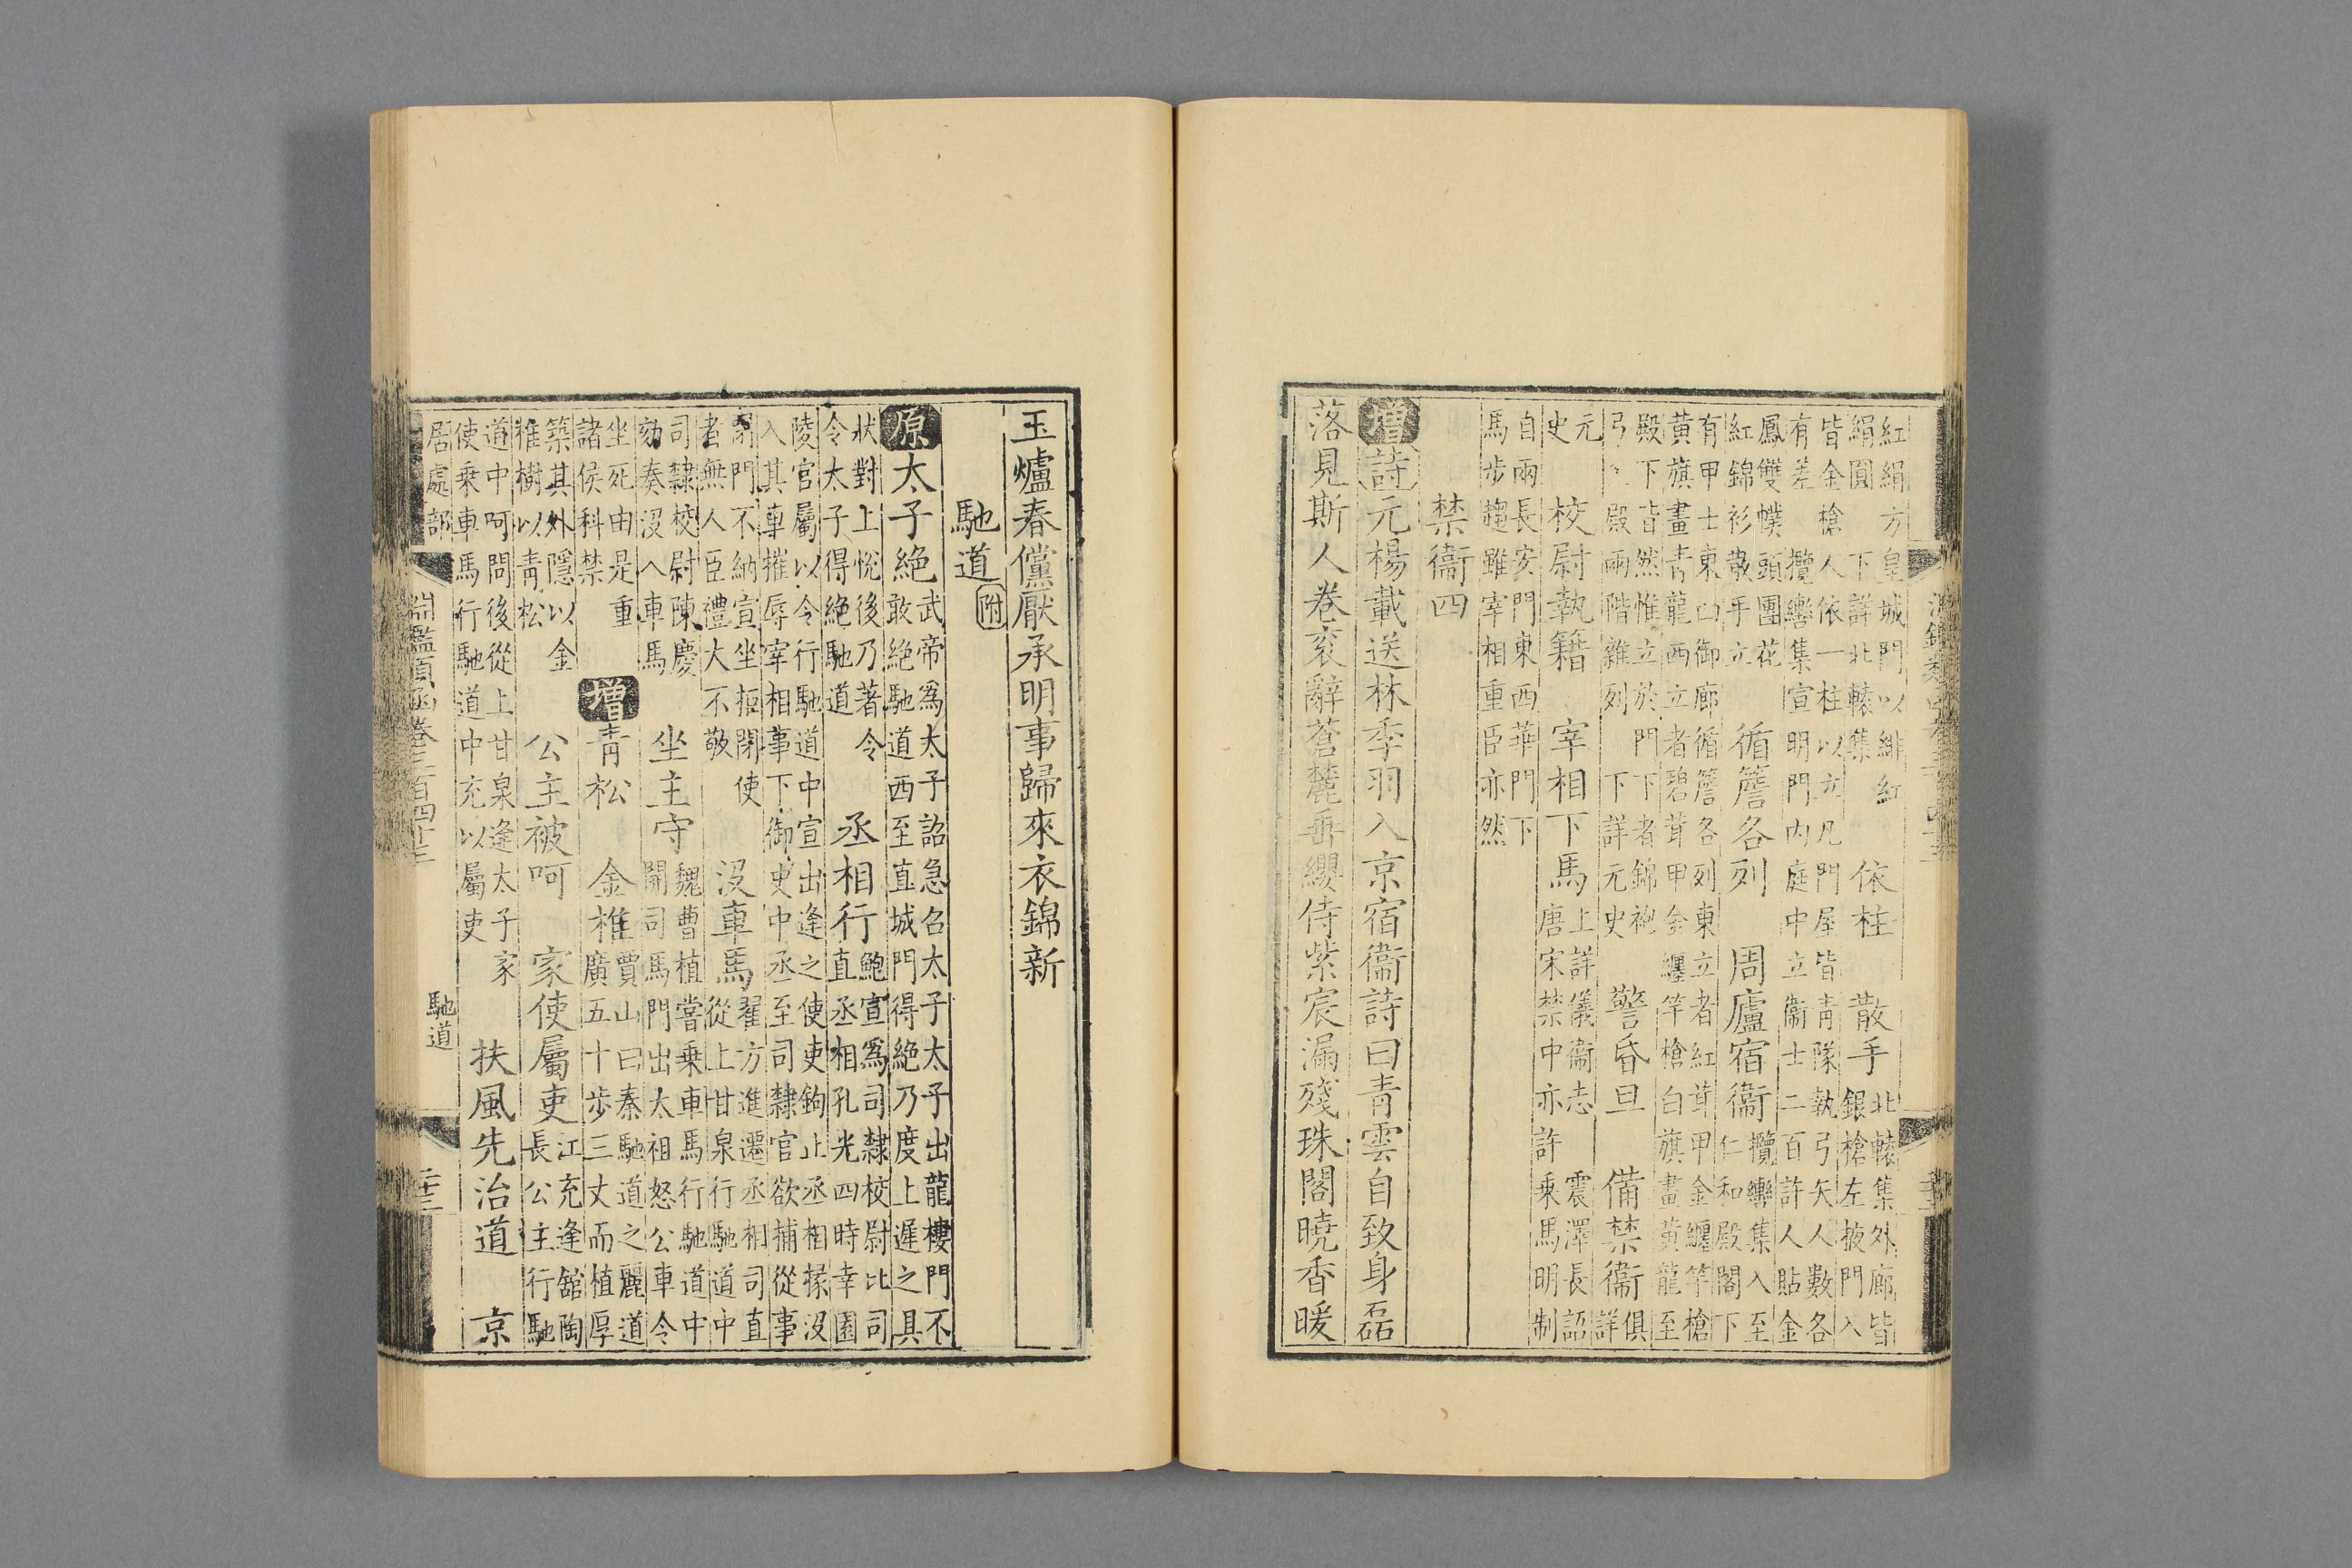 紅絹方皇城門以緋紅
絹圓下詳北轅集
依柱 散手
北轅集外廊皆
銀槍左掖門入
皆金槍人依一柱以立凡門屋皆青隊執弓矢人數各
有差 攬轡集宣明門内庭中立衞士二百許人貼金
鳳雙幞頭團花
紅錦衫散手立
循簷各列 周廬宿衞
攬轡集入至
仁和殿閣下
有甲士東山御廊循簷各列東立者紅茸甲金纏竿槍
黄旗畫青龍西立者碧茸甲金纏竿槍白旗畫黄龍至
殿下皆然惟立於門下者錦袍
弓 殿兩階雜列 下詳元史
警昏旦 備禁衞
俱
詳
元
史
校尉執籍 宰相下馬
上詳儀衞志 震澤長語
唐宋禁中亦許乘馬明制
自兩長安門東西華門下
馬步趨雖宰相重臣亦然
禁衞四
增詩元楊載送林季羽入京宿衞詩曰青雲自致身磊
落見斯人卷衮辭蒼麓垂纓侍紫宸漏殘珠閣曉香暖
玉爐春儻厭承明事歸來衣錦新
馳道附
原太子絶
武帝爲太子詔急召太子太子出龍樓門不
敢絶馳道西至直城門得絶乃度上遲之具
狀對上悅後乃著令
令太子得絶馳道
丞相行
鮑宣爲司隸校尉比司
直丞相孔光四時幸園
陵官屬以令行馳道中宣出逢之使吏鉤止丞相掾沒
入其車摧辱宰相事下御史中丞至司隸官欲捕從事
閉門不納宣坐拒閉使
者無人臣禮大不敬
沒車馬
翟方進遷丞相司直
從上甘泉行馳道中
司隸校尉陳慶
劾奏沒入車馬
坐主守
魏曹植嘗乘車馬行馳道中
開司馬門出太祖怒公車令
坐死由是重
諸侯科禁
增青松 金椎
賈山曰秦馳道之麗道
廣五十步三丈而植厚
築其外隱以金
椎樹以青松
公主被呵 家使屬吏
江充逢舘陶
長公主行馳
道中呵問後從上甘泉逢太子家
使乘車馬行馳道中充以屬吏
扶風先治道 京
居處部
淵鑑類函卷三百四十三
馳道